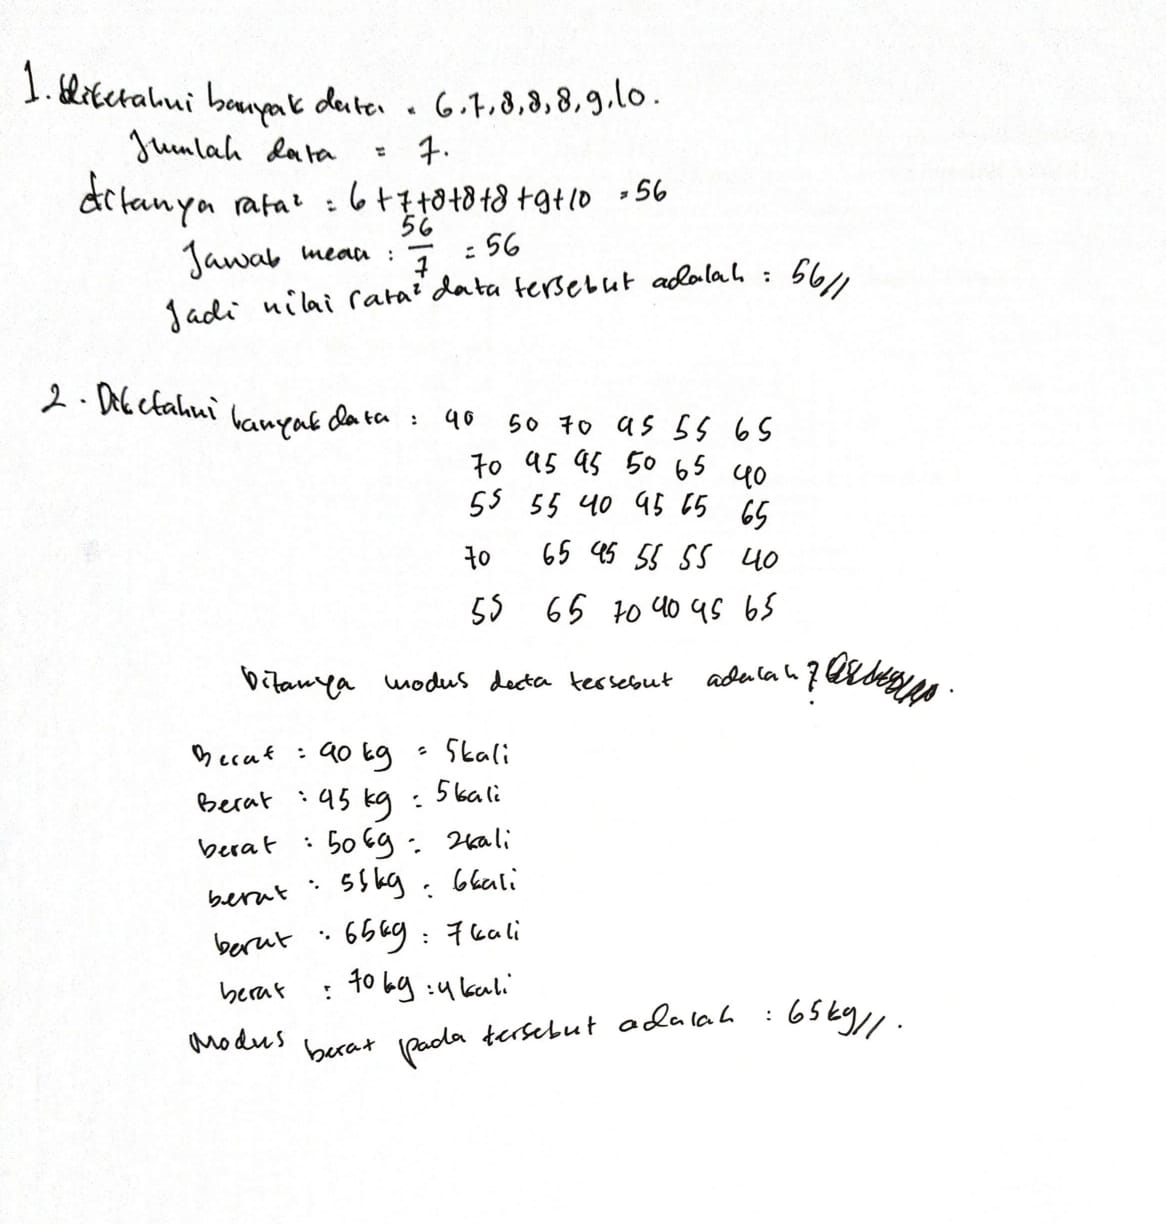 1. Diketahui banyak data = 6,7,8,8,8,9,10.
Jumlah data = 7.
ditanya rata² : 6+7+8+8+8+9+10 = 56
Jawab mean : 56/7 = 56
Jadi nilai rata² data tersebut adalah : 56//
2. Diketahui banyak data : 40 50 70 45 55 65
70 45 45 50 65 40
55 55 40 45 65 65
70 65 45 55 55 40
55 65 70 40 45 65
Ditanya modus data tersebut adalah ?
Berat : 40 kg = 5 kali
Berat : 45 kg : 5 kali
berat : 50 kg : 2 kali
berat : 55 kg : 6 kali
berat : 65 kg : 7 kali
berat : 70 kg : 4 kali
Modus berat pada tersebut adalah : 65 kg//.